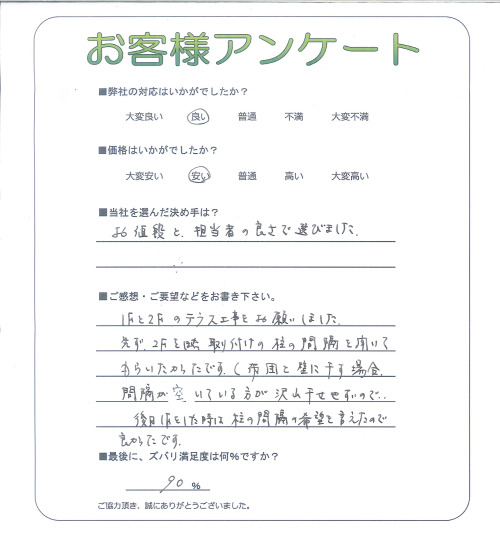 お客様アンケート
■弊社の対応はいかがでしたか？
大変良い 良い 普通 不満 大変不満
■価格はいかがでしたか？
大変安い 安い 普通 高い 大変高い
■当社を選んだ決め手は？
お値段と、担当者の良さで選びました。
■ご感想・ご要望などをお書き下さい。
1Fと2Fのテラス工事をお願いしました。
先ず、2Fを 取付けの柱の間隔を聞いて
もらいたかったです。（布団と壁に干す場合、
間隔が空いている方が沢山干せやすいので..
後日1Fをした時は柱の間隔の希望を言えたので
良かったです。
■最後に、ズバリ満足度は何%ですか？
90 %
ご協力頂き、誠にありがとうございました。